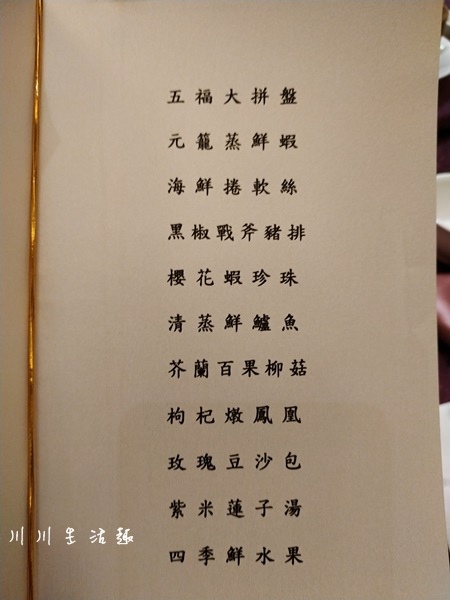 五福大拼盤
元籠蒸鮮蝦
海鮮捲軟絲
黑椒戰斧豬排
櫻花蝦珍珠
清蒸鮮鱸魚
芥蘭百果柳菇
枸杞燉鳳凰
玫瑰豆沙包
紫米蓮子湯
四季鮮水果
川川生活趣